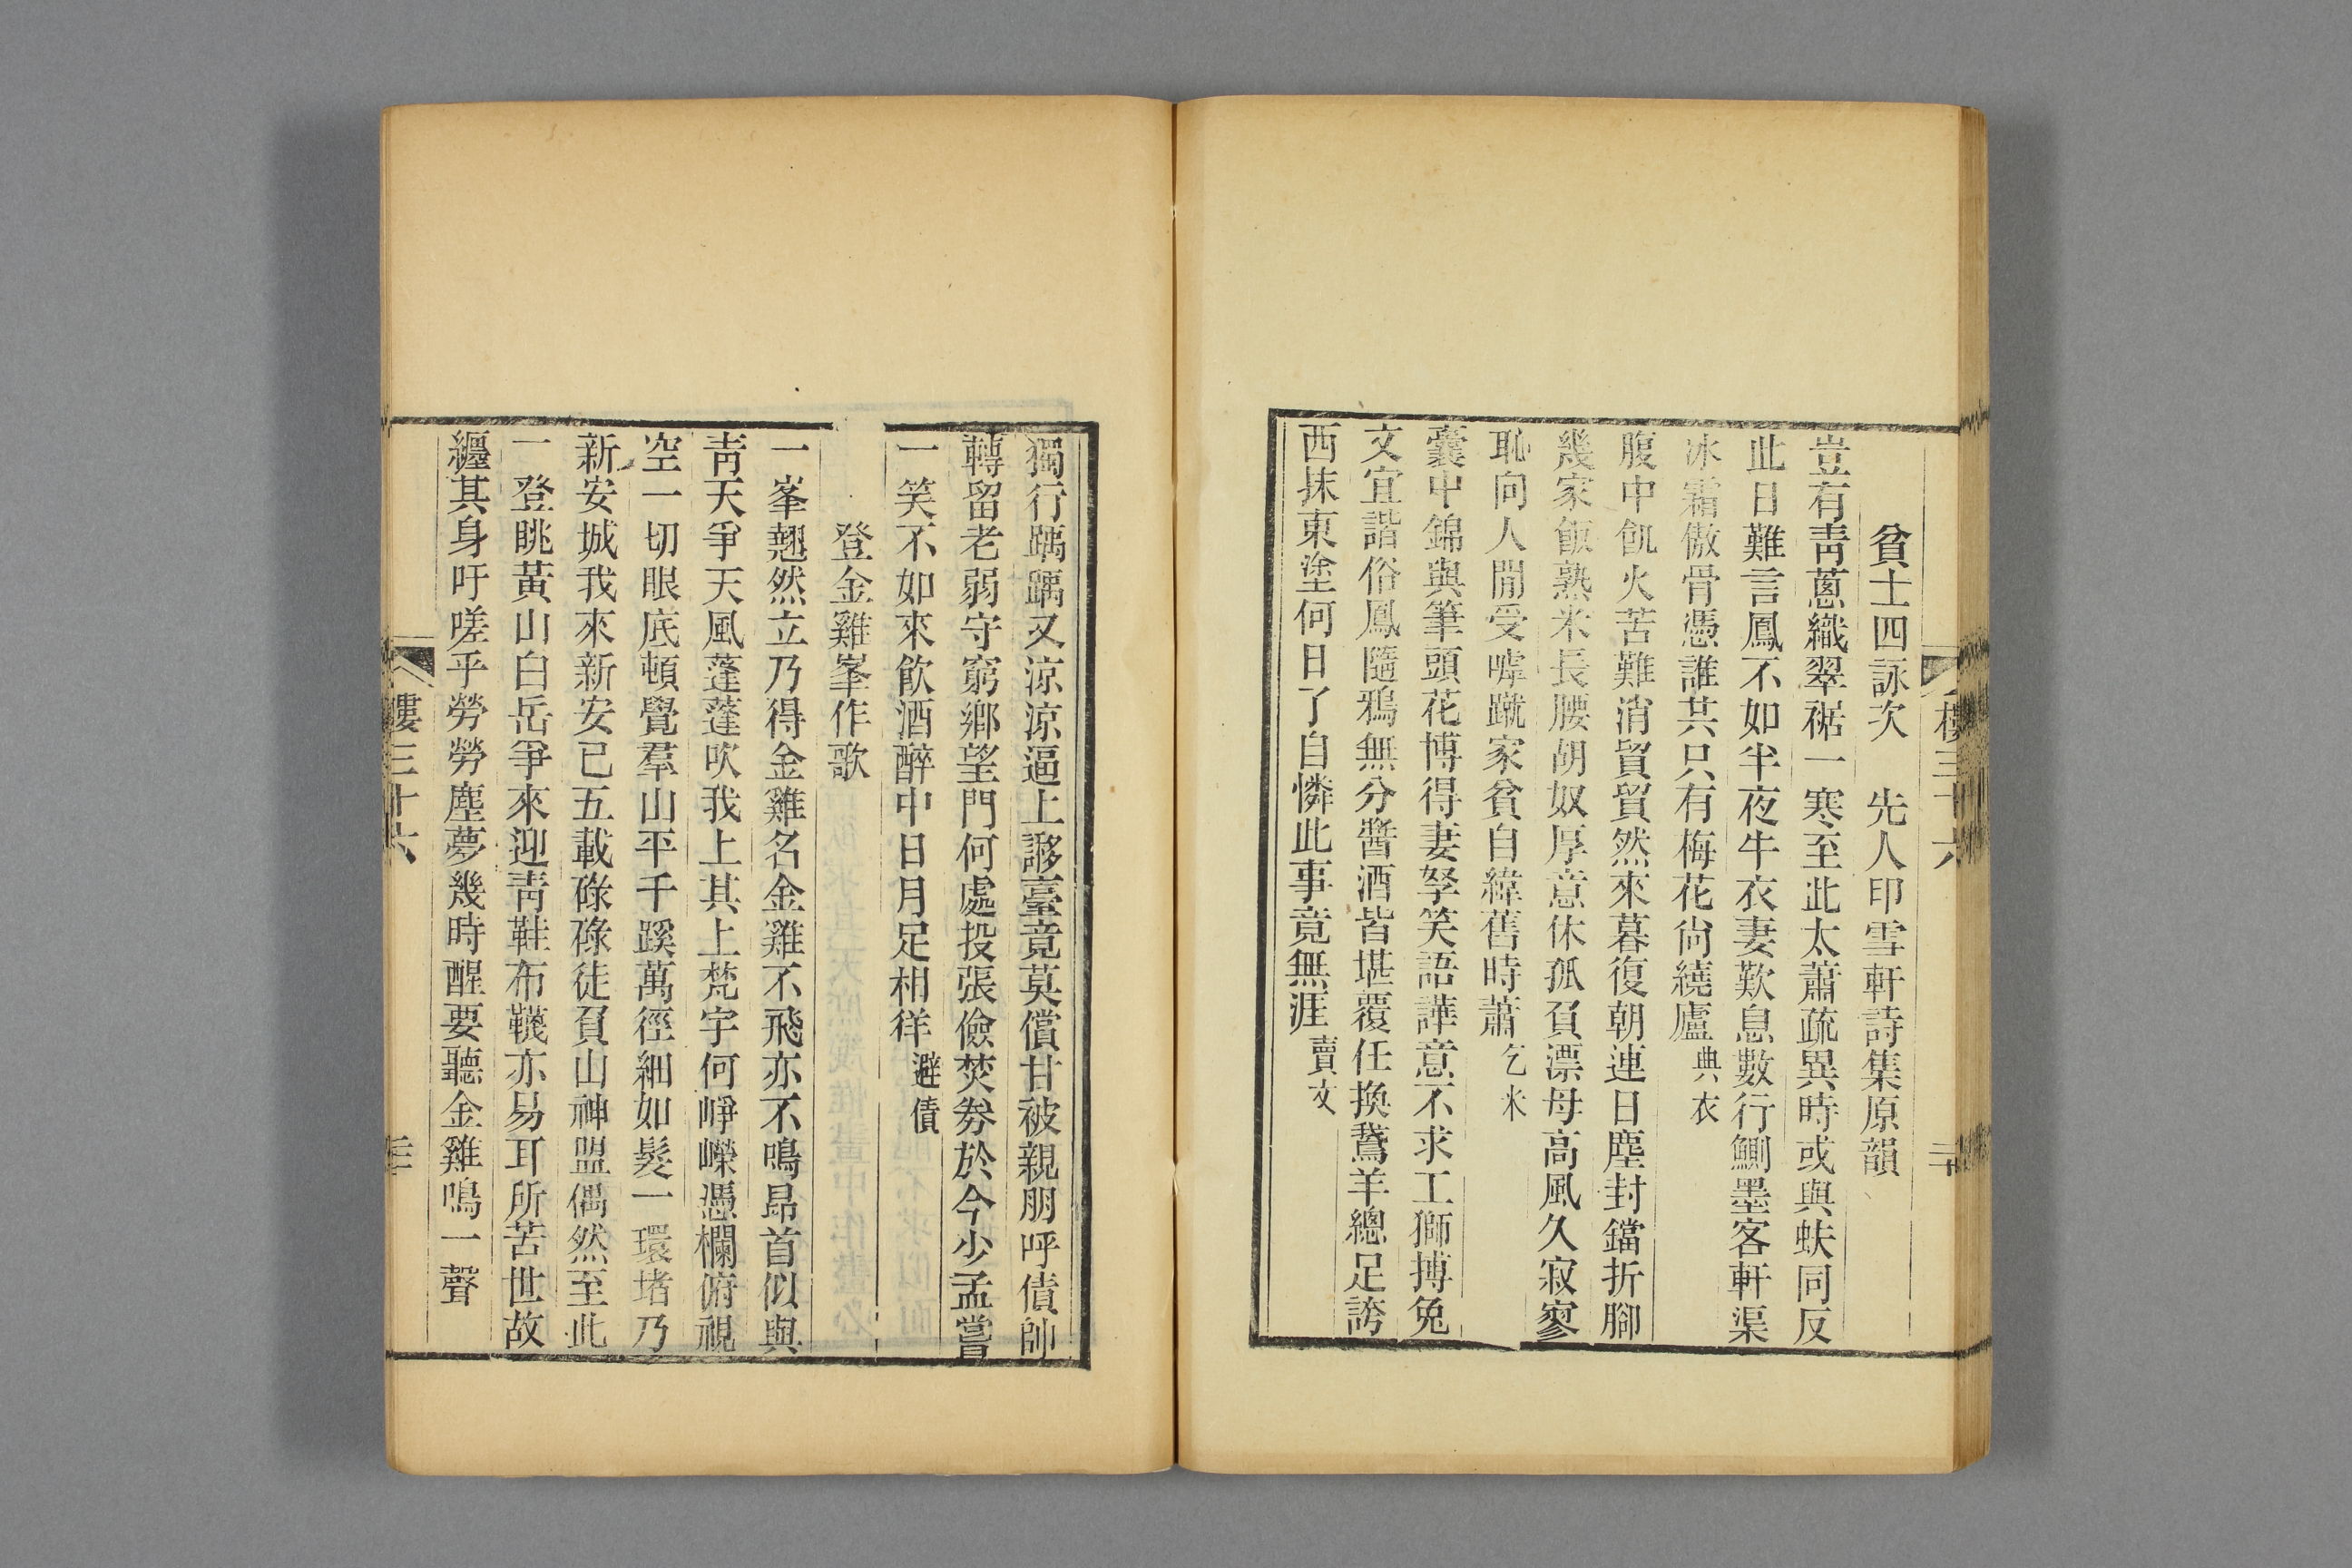 貧士四詠次　先人印雪軒詩集原韻
豈有靑蔥織翠裾一寒至此太蕭疏異時或與蚨同反
此日難言鳳不如半夜牛衣妻歎息數行鰂墨客軒渠
冰霜傲骨憑誰共只有梅花尙繞廬典衣
腹中飢火苦難消貿貿然來暮復朝連日塵封鐺折腳
幾家飯熟米長腰胡奴厚意休孤負漂母高風久寂寥
恥向人閒受嘑蹴家貧自緯舊時蕭乞米
囊中錦與筆頭花博得妻孥笑語譁意不求工獅搏兔
文宜諧俗鳳隨鴉無分醬酒皆堪覆任換鵞羊總足誇
西抹東塗何日了自憐此事竟無涯賣文
獨行踽踽又涼涼逼上謻臺竟莫償甘被親朋呼債帥
轉留老弱守窮鄉望門何處投張儉焚劵於今少孟嘗
一笑不如來飮酒醉中日月足相徉避債
登金雞峯作歌
一峯翹然立乃得金雞名金雞不飛亦不鳴昂首似與
靑天爭天風蓬蓬吹我上其上梵宇何崢嶸憑欄俯視
空一切眼底頓覺羣山平千蹊萬徑細如髮一環堵乃
新安城我來新安已五載碌碌徒負山神盟偶然至此
一登眺黃山白岳爭來迎靑鞋布韈亦易耳所苦世故
纏其身吁嗟乎勞勞塵夢幾時醒要聽金雞鳴一聲